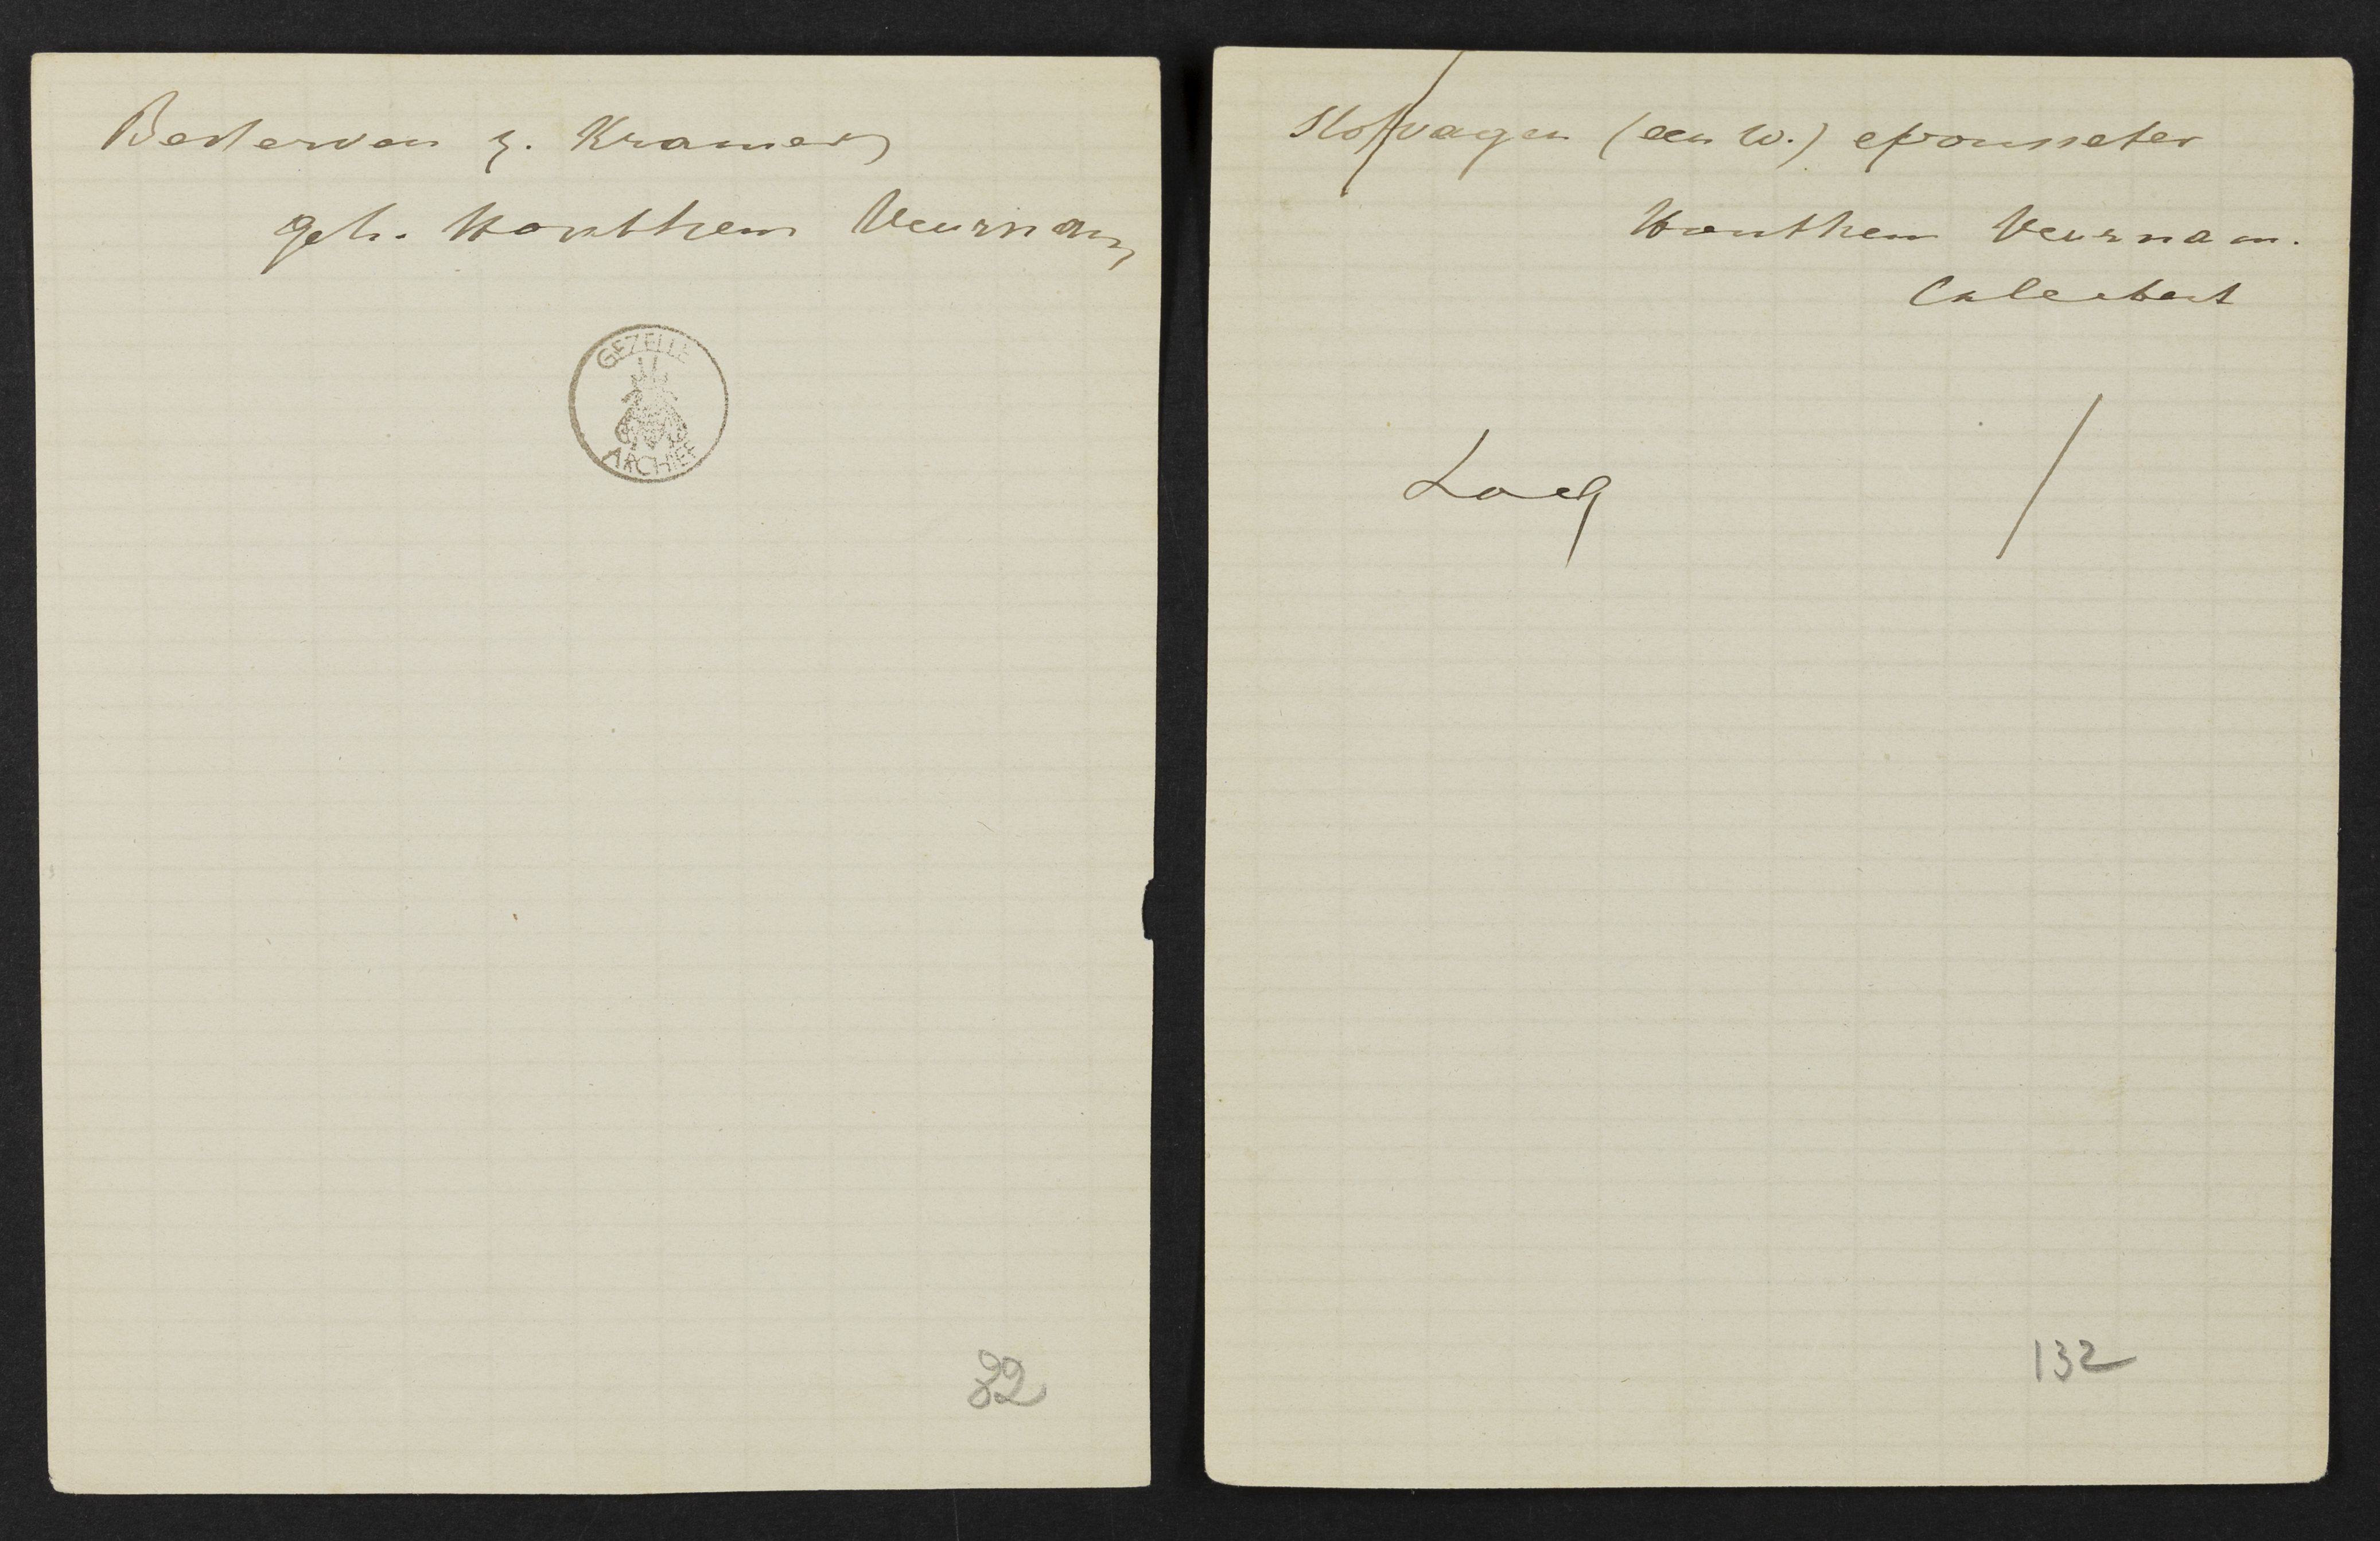 Besterven z. Kramers
geh. Houthem Veurnam
GEZELLE
ARCHIEF
82
Stofvagen (een w.) epousseter
Houthem Veurnam.
Calebert
Loq
132